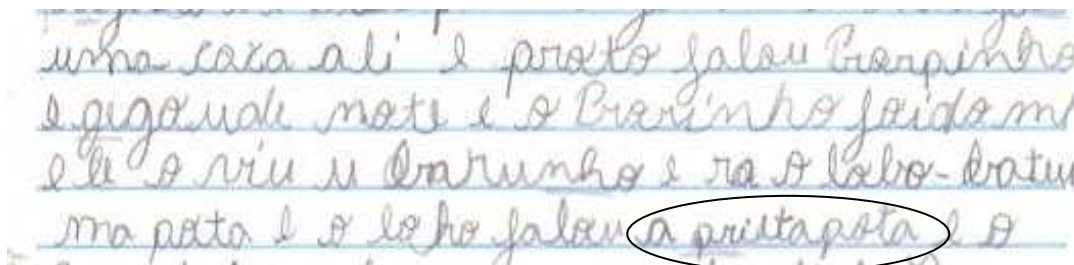 uma caza ali e proto falou Prorpinho
e gegoude note e o Prorinho foidom
e le o viu u brarunho e ra o lobo-batiu
ma pota e o lo ho falou a priutapota e o